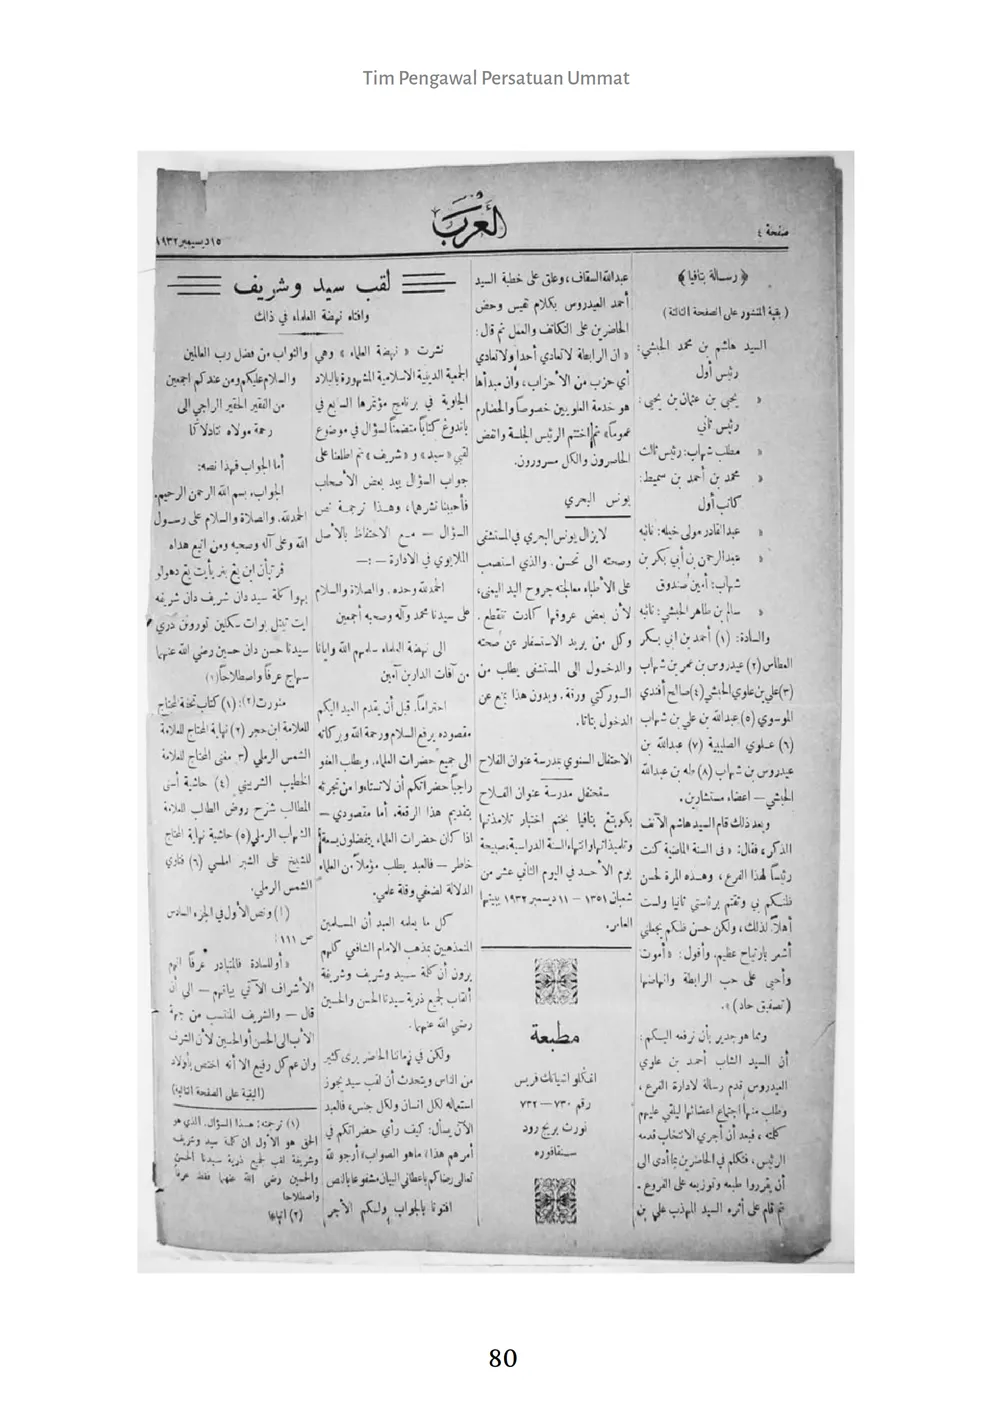 Tim Pengawal Persatuan Ummat
صفحة ٤
العرب
١٥ ديسيمبر ١٩٣٢
﴿ رسالة بتافيا ﴾
( بقية المنشور على الصفحة الثالثة )
السيد هاشم بن محمد الحبشي:
رئيس أول
« يحيى بن عثمان بن يحيى:
رئيس ثاني
« مطلب شهاب: رئيس ثالث
« محمد بن أحمد بن سميط:
كاتب أول
« عبد القادر مولى خيله: نائبه
« عبد الرحمن بن أبي بكر بن
شهاب: أمين صندوق
« سالم بن طاهر الحبشي: نائبه
والسادة: (١) أحمد بن ابي بكر
العطاس (٢) عيدروس بن عمر بن شهاب
(٣) علي بن علوي الحبشي (٤) صالح أفندي
الموسوي (٥) عبد الله بن علي بن شهاب
(٦) علوي الصليبية (٧) عبد الله بن
عيدروس بن شهاب (٨) طه بن عبد الله
الحبشي — اعضاء مستشارين.
وبعد ذلك قام السيد هاشم الآنف
الذكر، فقال: « في السنة الماضية كنت
رئيساً لهذا الفرع، وهذه المرة لحسن
ظنكم بي وثقتم برئاستي ثانيا ولست
أهلاً لذلك، ولكن حسن ظنكم يجعلني
أشعر بارتياح عظيم. وأقول: « أموت
وأحيى على حب الرابطة وانهاضها
( تصفيق حاد ) ».
ومما هو جدير بأن نرفعه اليكم:
أن السيد الشاب أحمد بن علوي
العيدروس قدم رسالة لادارة الفرع،
وطلب منها اجتماع اعضائها ليلقي عليهم
كلمته، فبعد أن أجري الانتخاب قدمه
الرئيس، فتكلم في الحاضرين بما أدى الى
أن يقرروا طبعه وتوزيعه على الفروع.
ثم قام على أثره السيد المهذب علي بن
عبد الله السقاف، وعلق على خطبة السيد
أحمد العيدروس بكلام نفيس وحض
الحاضرين على التكاتف والعمل ثم قال:
« ان الرابطة لا تعادي أحداً ولا تعادي
أي حزب من الأحزاب، وأن مبدأها
هو خدمة العلويين خصوصاً والحضارم
عموماً » ثم اختتم الرئيس الجلسة وانفض
الحاضرون والكل مسرورون.
يونس البحري
لا يزال يونس البحري في المستشفى
وصحته الى تحسن. والذي استصعب
على الأطباء معالجته جروح اليد اليمنى،
لأن بعض عروقها كادت تنقطع.
وكل من يريد الاستفسار عن صحته
والدخول الى المستشفى يطلب من
السوركتي ورقة. وبدون هذا يمنع عن
الدخول بتاتا.
الاحتفال السنوي بمدرسة عنوان الفلاح
ستحتفل مدرسة عنوان الفلاح
بكويتغ بتافيا بختم اختبار تلامذتها
وتلميذاتها وانتهاء السنة الدراسية، صبيحة
يوم الأحد في اليوم الثاني عشر من
شعبان ١٣٥١ — ١١ ديسمبر ١٩٣٢ ببيتها
العامر.
مطبعة
رقم ٧٣٠ — ٧٣٢
نورث بريج رود
سنقافوره
لقب سيد وشريف
وافتاه نهضة العلماء في ذلك
نشرت « نهضة العلماء » وهي
الجمعية الدينية الاسلامية المشهورة بالبلاد
الجاوية في برنامج مؤتمرها السابع في
باندوغ كتاباً متضمناً لسؤال في موضوع
لقبي « سيد » و « شريف » ثم اطلعنا على
جواب السؤال بيد بعض الأصحاب
فأحببنا نشرهما، وهذا ترجمة نص
السؤال — مع الاحتفاظ بالأصل
الملايوي في الادارة — :—
الحمد لله وحده. والصلاة والسلام
على سيدنا محمد وآله وصحبه أجمعين
الى نهضة العلماء سلمهم الله وايانا
من آفات الدارين آمين
احتراماً. قبل أن يقدم العبد اليكم
مقصوده يرفع السلام ورحمة الله وبركاته
الى جميع حضرات العلماء. ويطلب العفو
راجياً حضراتكم أن لا تستاءوا من تجرئه
بتقديم هذا الرقعة. أما مقصودي —
اذا كان حضرات العلماء يتفضلون بسعة
خاطر — فالعبد يطلب مؤملاً من العلماء
الدلالة لضعفي وقلة علمي.
كل ما يعلمه العبد أن المسلمين
المتمذهبين بمذهب الامام الشافعي كلهم
يرون أن كلمة سيد وشريف وشريفة
ألقاب لجميع ذرية سيدنا الحسن والحسين
رضي الله عنهما.
ولكن في زماننا الحاضر يرى كثير
من الناس ويتحدث أن لقب سيد يجوز
استعماله لكل انسان ولكل جنس، فالعبد
الآن يسأل: كيف رأي حضراتكم في
أمر هم هذا؟ ما هو الصواب؟ أرجو لله
تعالى رضاكم باعطائي البيان مشفوعا بالنص
افتونا بالجواب ولكم الأجر
والثواب من فضل رب العالمين
والسلام عليكم ومن عندكم اجمعين
من الفقير الحقير الراجي الى
رحمة مولاه
أما الجواب فهذا نصه:
الجواب، بسم الله الرحمن الرحيم.
الحمد لله. والصلاة والسلام على رسول
الله وعلى آله وصحبه ومن اتبع هداه
فرتبأن اين يغ بنر يأيت يغ دهولو
بهوا كلمة سيد دان شريف دان شريفه
ايت تتبل بوات سكلين توروونن دري
سيدنا حسن دان حسين رضي الله عنهما
سهاج عرفاً واصطلاحاً (١)
منورت (٢): (١) كتاب تحفة المحتاج
للعلامة ابن حجر (٢) نهاية المحتاج للعلامة
الشمس الرملي (٣) مغنى المحتاج للعلامة
الخطيب الشربيني (٤) حاشية أسنى
المطالب شرح روض الطالب للعلامة
الشهاب الرملي (٥) حاشية نهاية المحتاج
للشيخ على الشبر املسي (٦) فتاوي
الشمس الرملي.
(أ) ونص الأول في الجزء السادس
ص ١١١:
« أو للسادة فالمتبادر عرفاً انهم
الأشراف الآتي بيانهم — الى أن
قال — والشريف المنتسب من جهة
الأب الى الحسن أو الحسين لأن الشرف
وان عم كل رفيع الا أنه اختص بأولاد
(البقية على الصفحة التالية)
(١) ترجمته: هذا السؤال. الذي هو
الحق هو الأول ان كلمة سيد وشريف
وشريفة لقب لجميع ذرية سيدنا الحسن
والحسين رضي الله عنهما فقط عرفاً
واصطلاحا
(٢) اتباعا
80